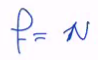 f = N